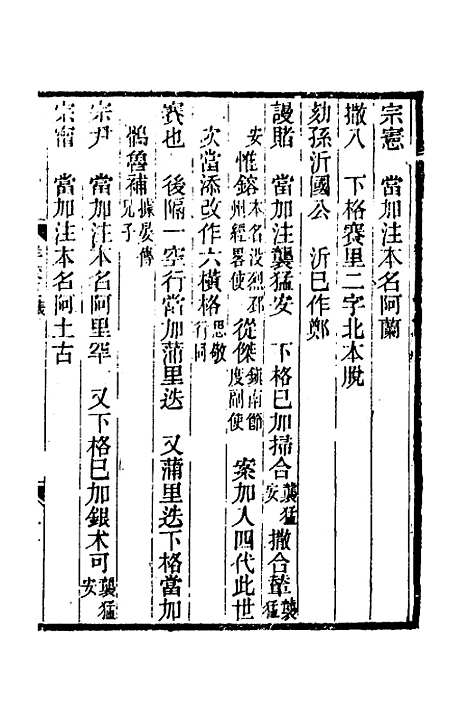 宗憲　當加注本名阿蘭
撒八　下格賽里二字北本脫
劾孫沂國公　沂巳作鄭
謾睹　當加注襲猛安　下格巳加掃合襲猛安　撒合輦襲猛
安　惟鎔本名没烈邳州經畧使　從傑鎮南節度副使　案加入四代此世
次當添改作六橫格思敬行同
賽也　後隔一空行當加蒲里迭　又蒲里迭下格當加
鶻魯補據晏傳兄子
宗尹　當加注本名阿里罕　又下格巳加銀术可襲猛安
宗甯　當加注本名阿土古